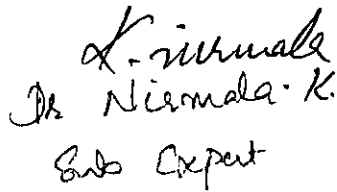 K. Nirmala
Dr Nirmala. K.
Expert